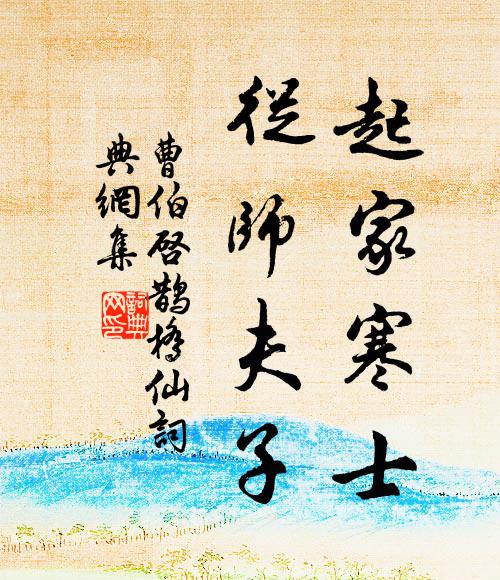 起家寒士
從師夫子
曹伯啓鵲橋仙詞
典網集
詞典
网印